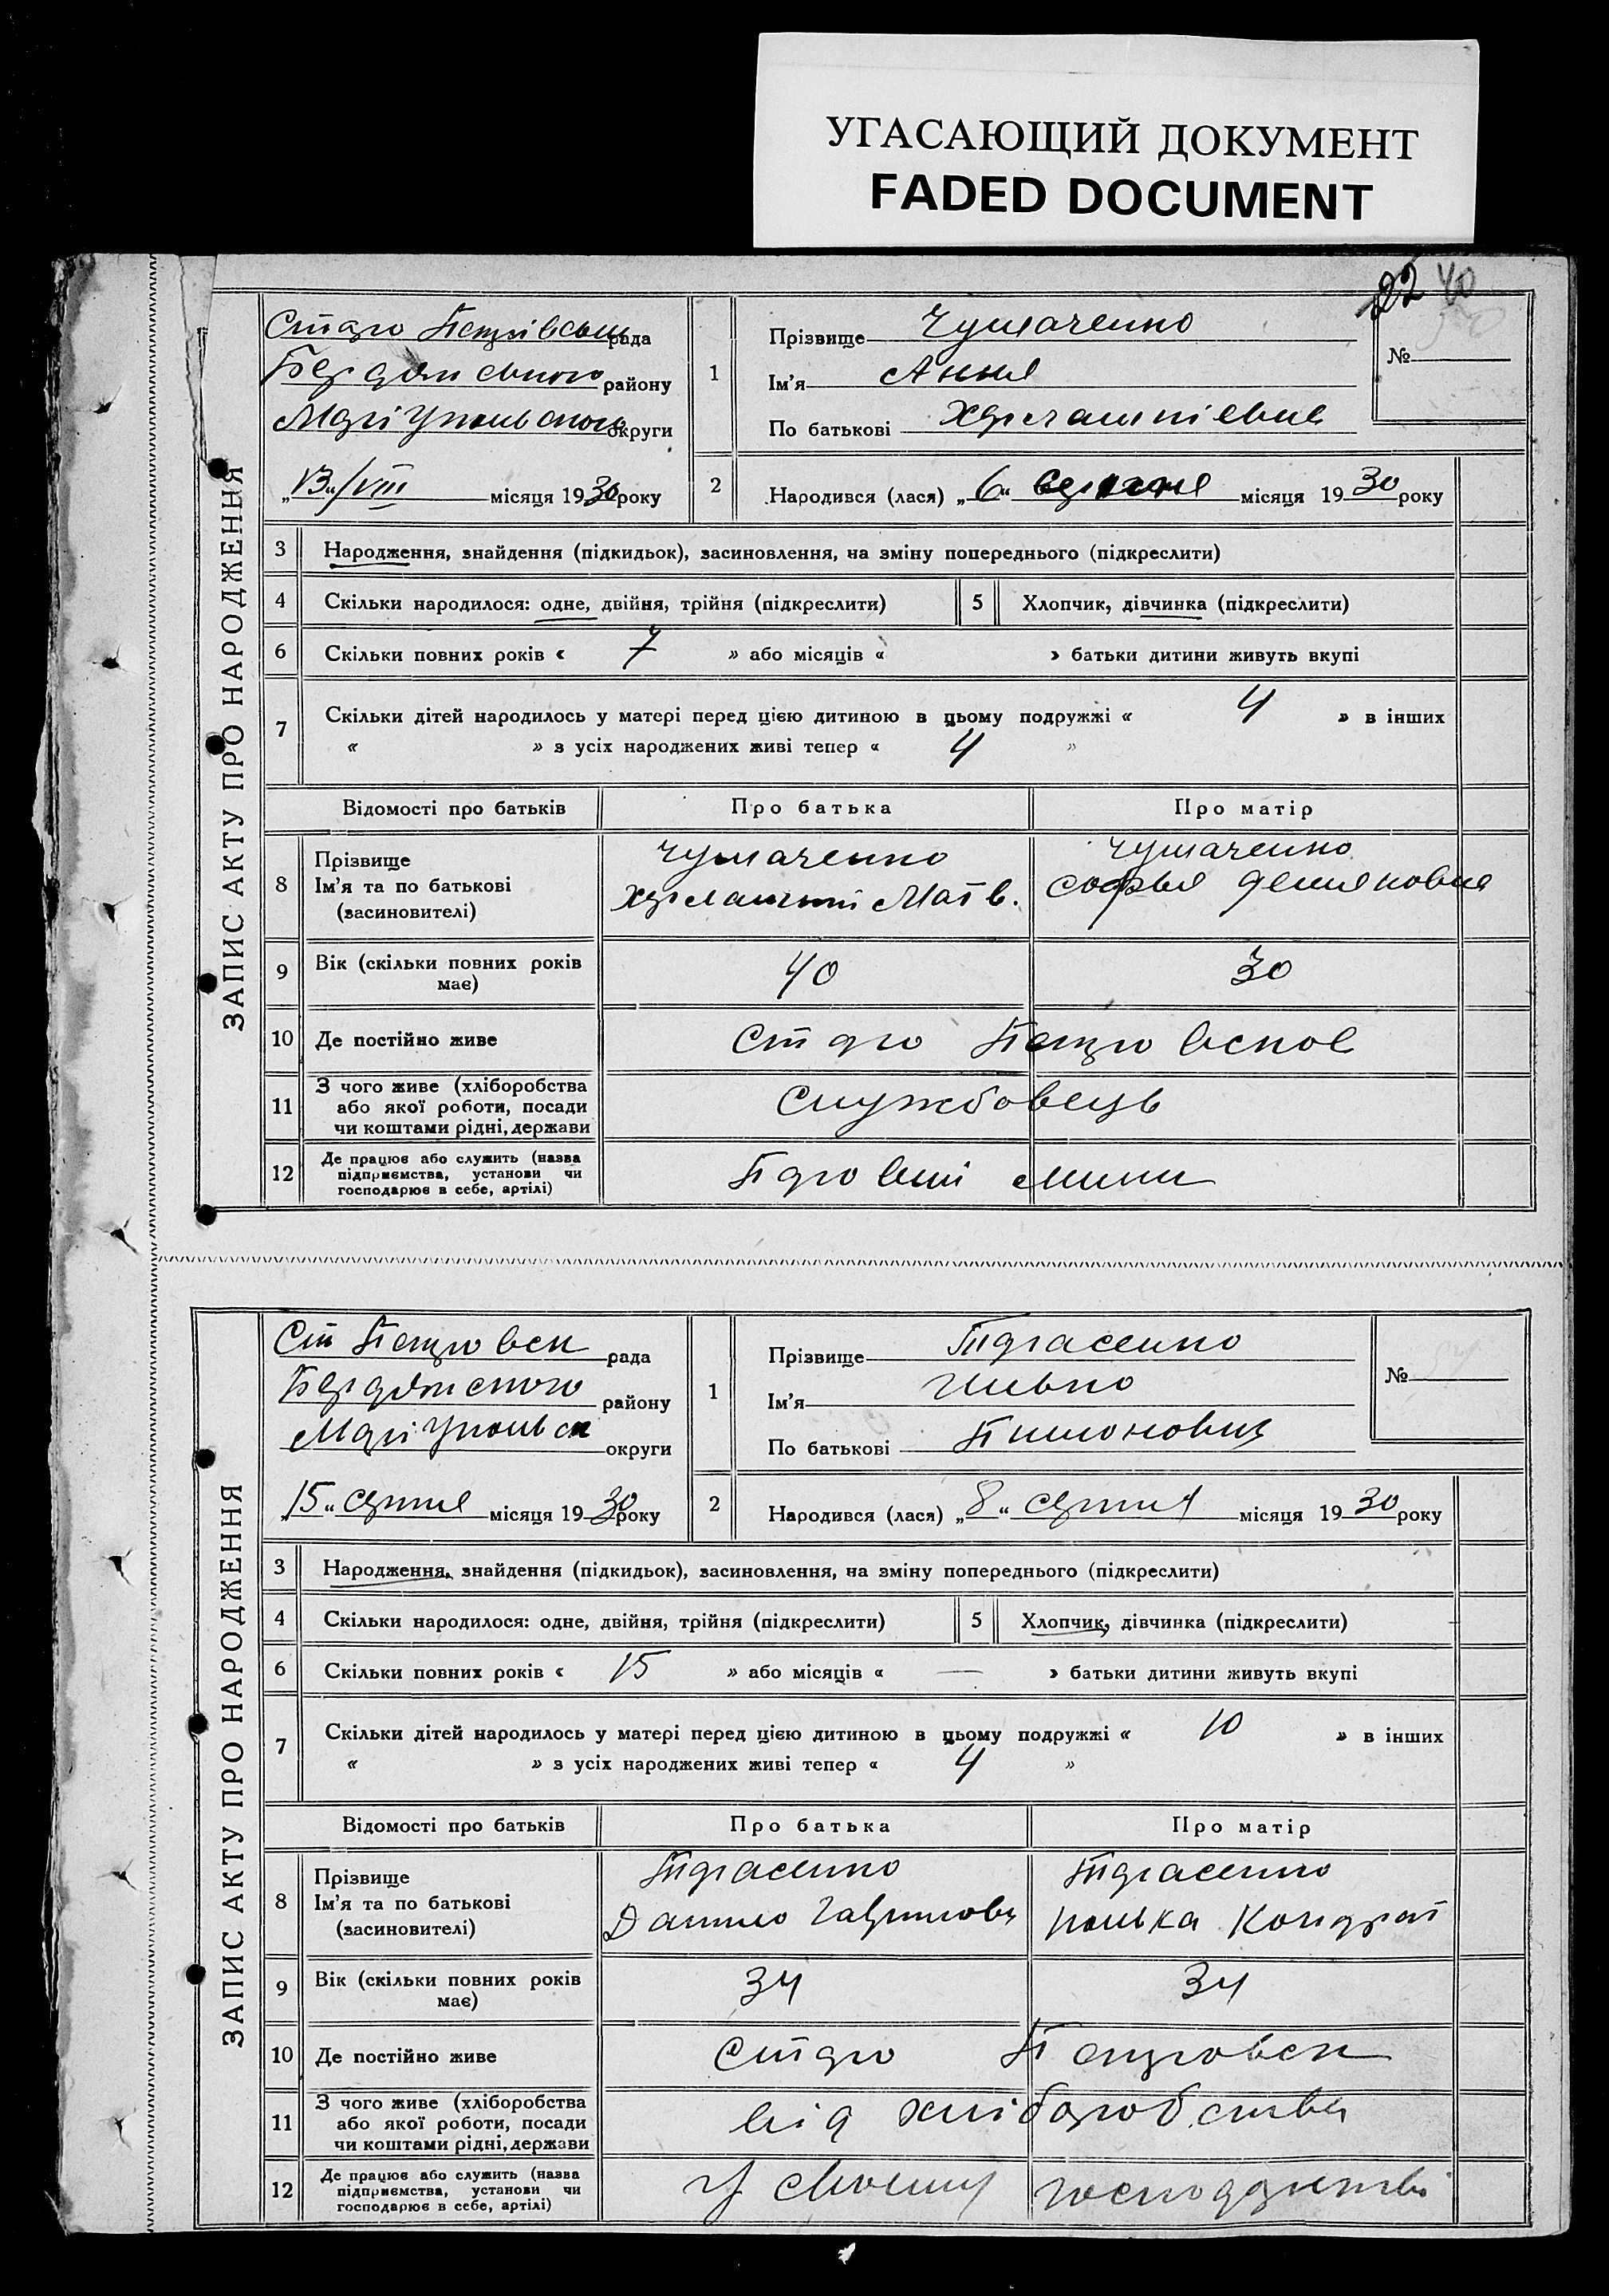 УГАСАЮЩИЙ ДОКУМЕНТ
FADED DOCUMENT
22 40
ЗАПИС АКТУ ПРО НАРОДЖЕННЯ
Старо Петрівськ рада
Бердянського району
Маріупольського округи
„13“/VIII місяця 1930 року
1
Прізвище Чумаченко
Ім’я Анна
По батькові Харлампіевна
№
2
Народився (лася) „6“ серпня місяця 1930 року
3 Народження, знайдення (підкидьок), засиновлення, на зміну попереднього (підкреслити)
4 Скільки народилося: одне, двійня, трійня (підкреслити) 5 Хлопчик, дівчинка (підкреслити)
6 Скільки повних років « 7 » або місяців « » батьки дитини живуть вкупі
7 Скільки дітей народилось у матері перед цією дитиною в цьому подружжі « 4 » в інших
« » з усіх народжених живі тепер « 4 »
Відомості про батьків Про батька Про матір
8 Прізвище
Ім’я та по батькові
(засиновителі)
Чумаченко
Харлампий Матв.
Чумаченко
Софья Демяновна
9 Вік (скільки повних років
має) 40 30
10 Де постійно живе Старо Петровское
11 З чого живе (хліборобства
або якої роботи, посади
чи коштами рідні, держави Службовець
12 Де працює або служить (назва
підприємства, установи чи
господарює в себе, артілі) Паровий млин
ЗАПИС АКТУ ПРО НАРОДЖЕННЯ
Ст Петровск рада
Бердянского району
Маріупольск округи
„15“ серпня місяця 1930 року
1
Прізвище Тарасенко
Ім’я
По батькові
№
2
Народився (лася) „8“ серпня місяця 1930 року
3 Народження, знайдення (підкидьок), засиновлення, на зміну попереднього (підкреслити)
4 Скільки народилося: одне, двійня, трійня (підкреслити) 5 Хлопчик, дівчинка (підкреслити)
6 Скільки повних років « 15 » або місяців « — » батьки дитини живуть вкупі
7 Скільки дітей народилось у матері перед цією дитиною в цьому подружжі « 10 » в інших
« » з усіх народжених живі тепер « 4 »
Відомості про батьків Про батька Про матір
8 Прізвище
Ім’я та по батькові
(засиновителі)
Тарасенко
Данило Гаврилов
Тарасенко
Кондрат
9 Вік (скільки повних років
має) 34 34
10 Де постійно живе Старо Петровск
11 З чого живе (хліборобства
або якої роботи, посади
чи коштами рідні, держави від хліборобства
12 Де працює або служить (назва
підприємства, установи чи
господарює в себе, артілі) У своему господарстві